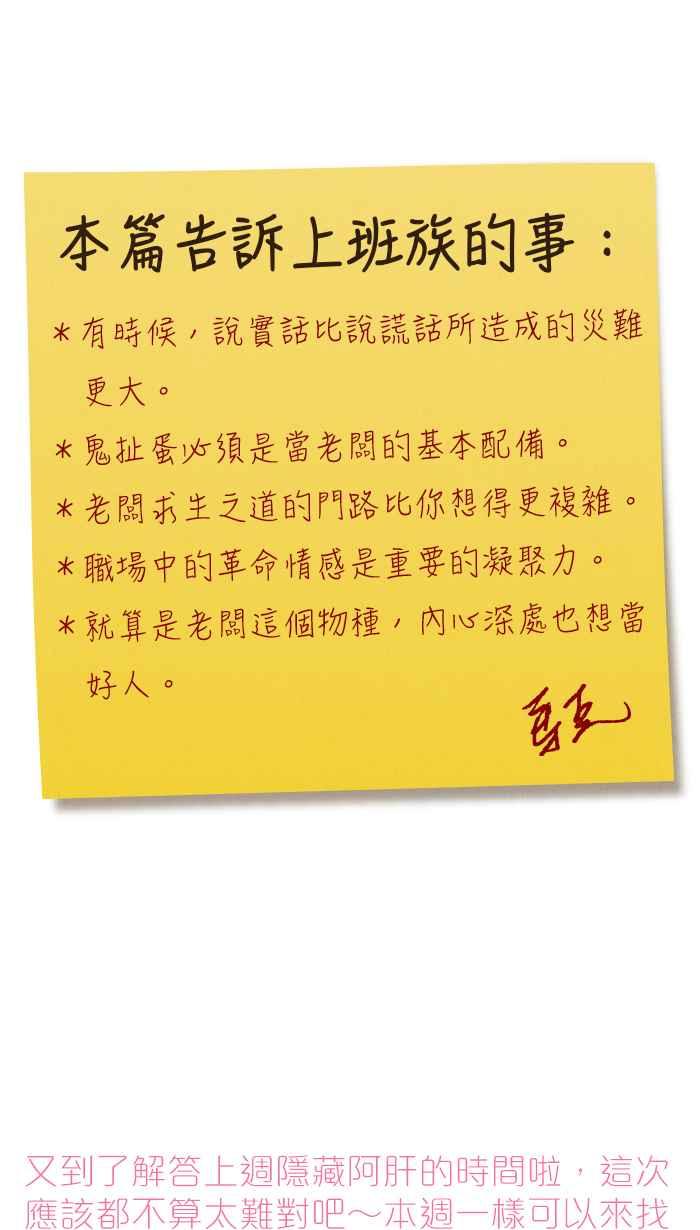 本篇告訴上班族的事：
＊有時候，說實話比說謊話所造成的災難
更大。
＊鬼扯蛋必須是當老闆的基本配備。
＊老闆求生之道的門路比你想得更複雜。
＊職場中的革命情感是重要的凝聚力。
＊就算是老闆這個物種，內心深處也想當
好人。
又到了解答上週隱藏阿肝的時間啦，這次
應該都不算太難對吧～本週一樣可以來找